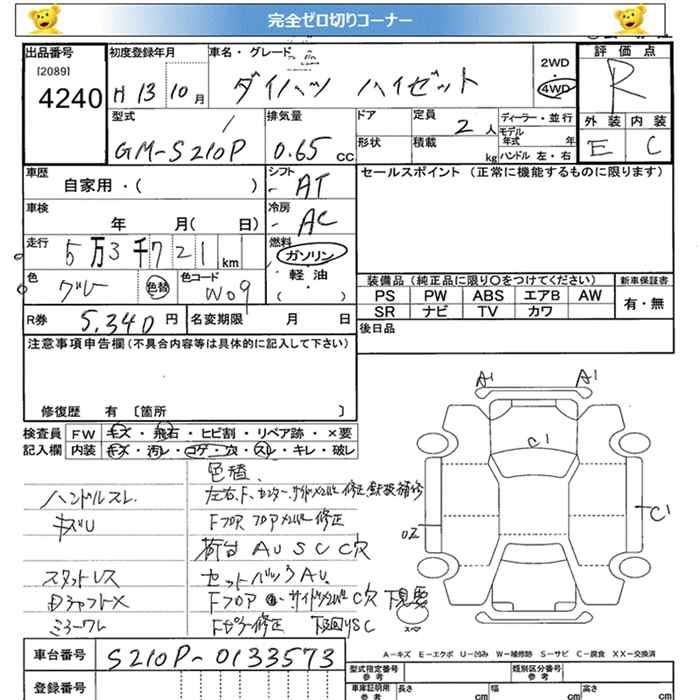 完全ゼロ切りコーナー
出品番号
[2089]
4240
初度登録年月
H 13 10 月
車名・グレード
ダイハツ ハイゼット
2WD
4WD
評価点
R
外装 内装
E C
型式
GM-S210P
排気量
0.65 cc
ドア
形状
定員
2人
積載
kg
ディーラー・並行
モデル年式 年
ハンドル 左・右
車歴
自家用・( )
シフト
AT
セールスポイント (正常に機能するものに限ります)
車検
年 月( 日)
冷房
AC
走行
5万3千721 km
燃料
ガソリン
軽油
( ・ )
色
グレー
色替
色コード
W09
装備品 (純正品に限り○をつけてください)
新車保証書
PS PW ABS エアB AW
SR ナビ TV カワ
有・無
R券 5,340円
名変期限 月 日
後日品
注意事項申告欄(不具合内容等は具体的に記入して下さい)
修復歴 有 〔箇所 〕
検査員記入欄
FW キズ・飛石・ヒビ割・リペア跡・×要
内装 キズ・汚レ・コゲ・穴・スレ・キレ・破レ
色替、
ハンドルスレ
左右、F、センター、サイドメンバー修正、鉄板補修
キズU
Fフロア フロアメンバー修正
荷台 AUSC C穴
スタットレス
セットバックAU.
DシャフトX
Fフロア サイドメンバーC穴 下見要
ミラーワレ
Fピラー修正 下廻りSC
A1
A1
C1
C1
U2
スペ
A-キズ E-エクボ U-凹み W-補修跡 S-サビ C-腐食 XX-交換済
車台番号
S210P-0133573
登録番号
型式指定番号 参考
類別区分番号 参考
車庫証明用 参考
長さ cm
幅 cm
高さ cm